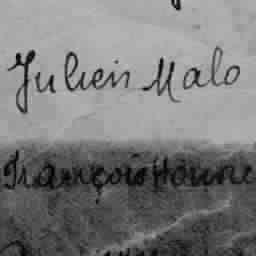 Julien Malo
François Houne